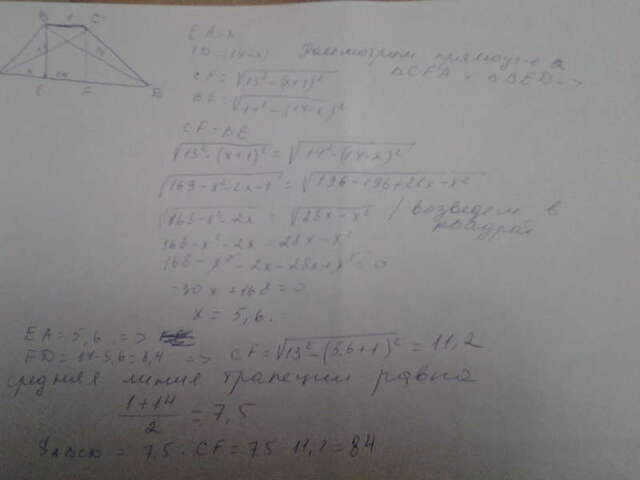 B 1 C
13 14
x 14
E F D
EA = x
ED = (14-x) Рассмотрим прямоуг-е Δ
CF = √13² - (x+1)² ΔCFA и ΔBED =>
BE = √14² - (14-x)²
CF = BE
√13² - (x+1)² = √14² - (14-x)²
√169 - x² - 2x - 1 = √196 - 196 + 28x - x²
√168 - x² - 2x = √28x - x² / возведем в
квадрат
168 - x² - 2x = 28x - x²
168 - x² - 2x - 28x + x² = 0
-30x + 168 = 0
x = 5,6.
EA = 5,6. =>
ED = 14 - 5,6 = 8,4 => CF = √13² - (5,6+1)² = 11,2
средняя линия трапеции равна
1+14
2 = 7,5
SABCD = 7,5 · CF = 7,5 · 11,2 = 84